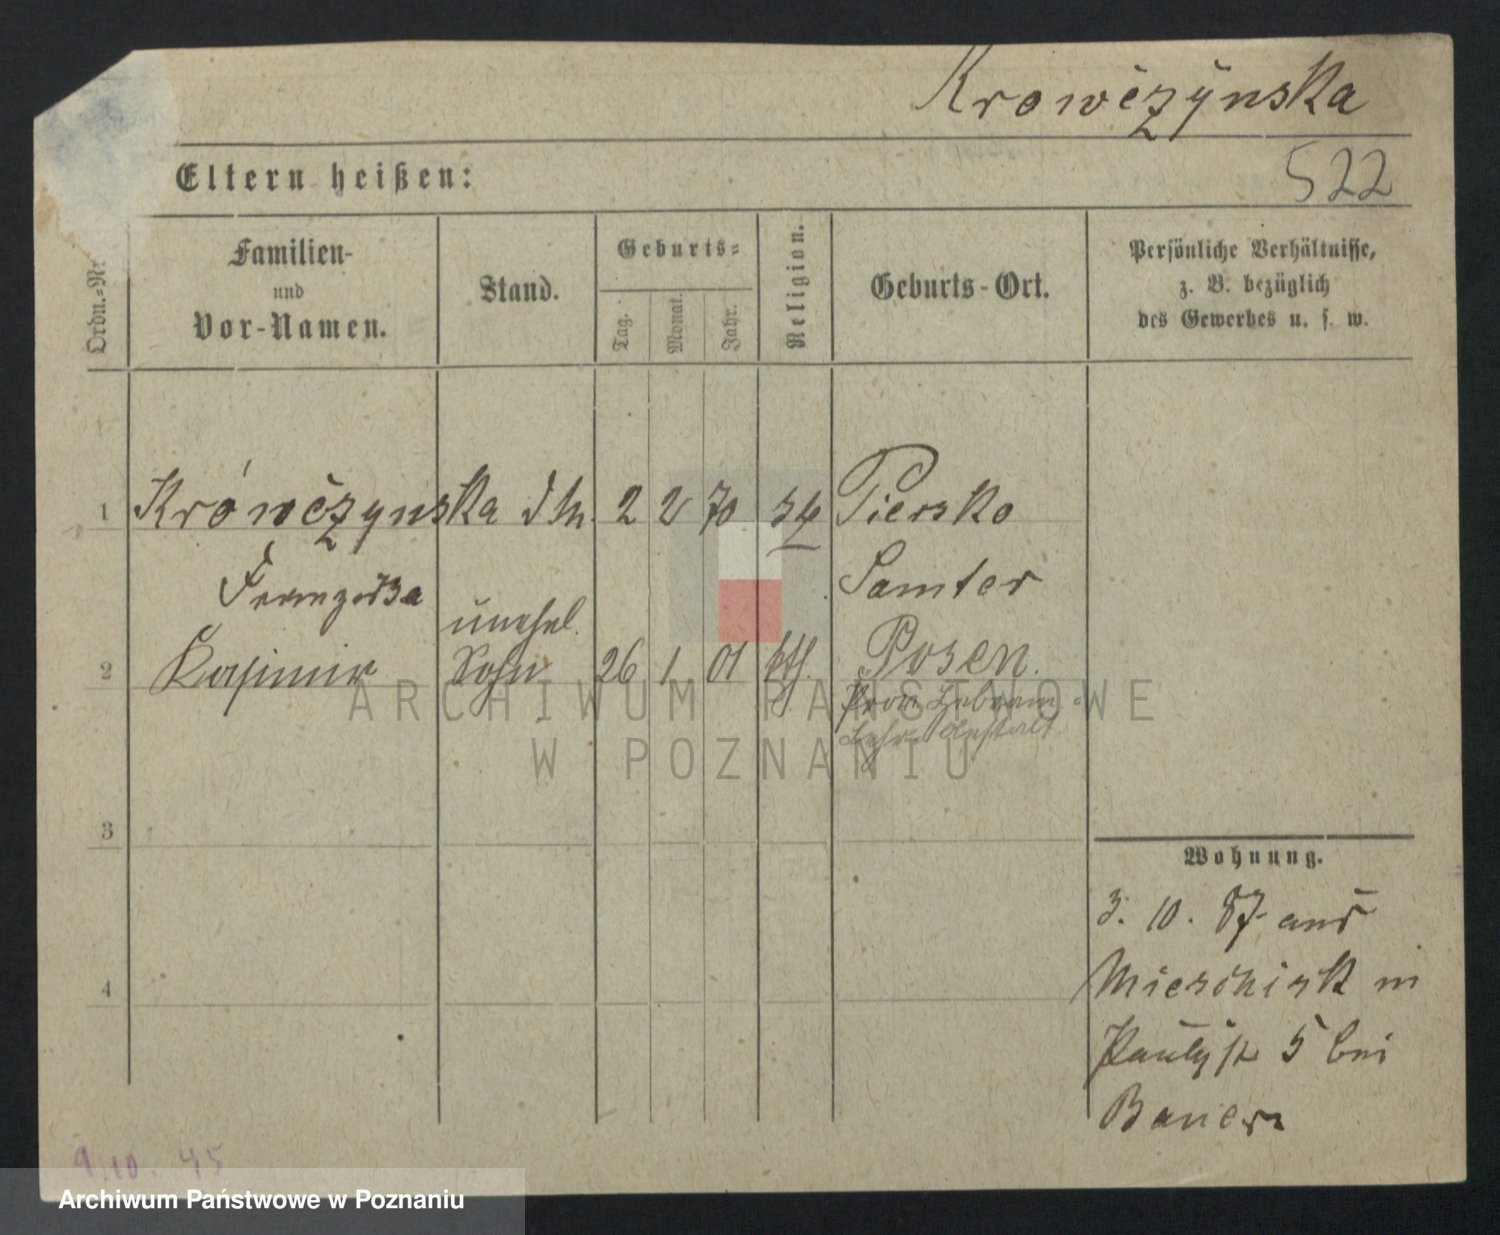 Krowczynska
Eltern heißen:
522
Ordn.-Nr
Familien-
und
Vor-Namen.
Stand.
Geburts-
Tag.
Monat.
Jahr.
Religion.
Geburts-Ort.
Persönliche Verhältnisse,
z. B. bezüglich
des Gewerbes u. s. w.
1 Krówczynska 2 2 70 Piersko
Franziska Samter
unehel.
2 Kasimir Sohn 26 1 01 kth. Posen.
Prov. Hebamm.
Lehr Anstalt
3
4
Wohnung.
3. 10. 87 aus
in
Paulist 5 bei
Bauer
9.10.45
ARCHIWUM PAŃSTWOWE
W POZNANIU
Archiwum Państwowe w Poznaniu